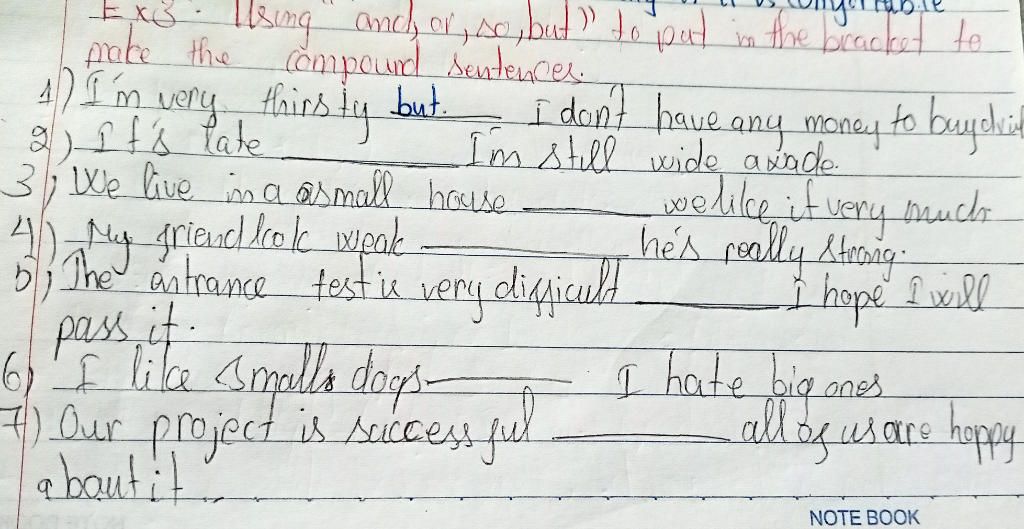 or it is comfortable
Ex3. Using "and, or, so, but" to put in the bracket to
make the compound sentences.
1) I'm very thirsty but. ___ I don't have any money to buy
2) It's late ___ I'm still wide awade.
3) We live in a small house ___ we like it very much
4) My friend look weak ___ he's really strong.
5) The antrance test is very difficult ___ I hope I will
pass it.
6) I like smalls dogs ___ I hate big ones
7) Our project is successful ___ all of us are happy
about it
NOTE BOOK